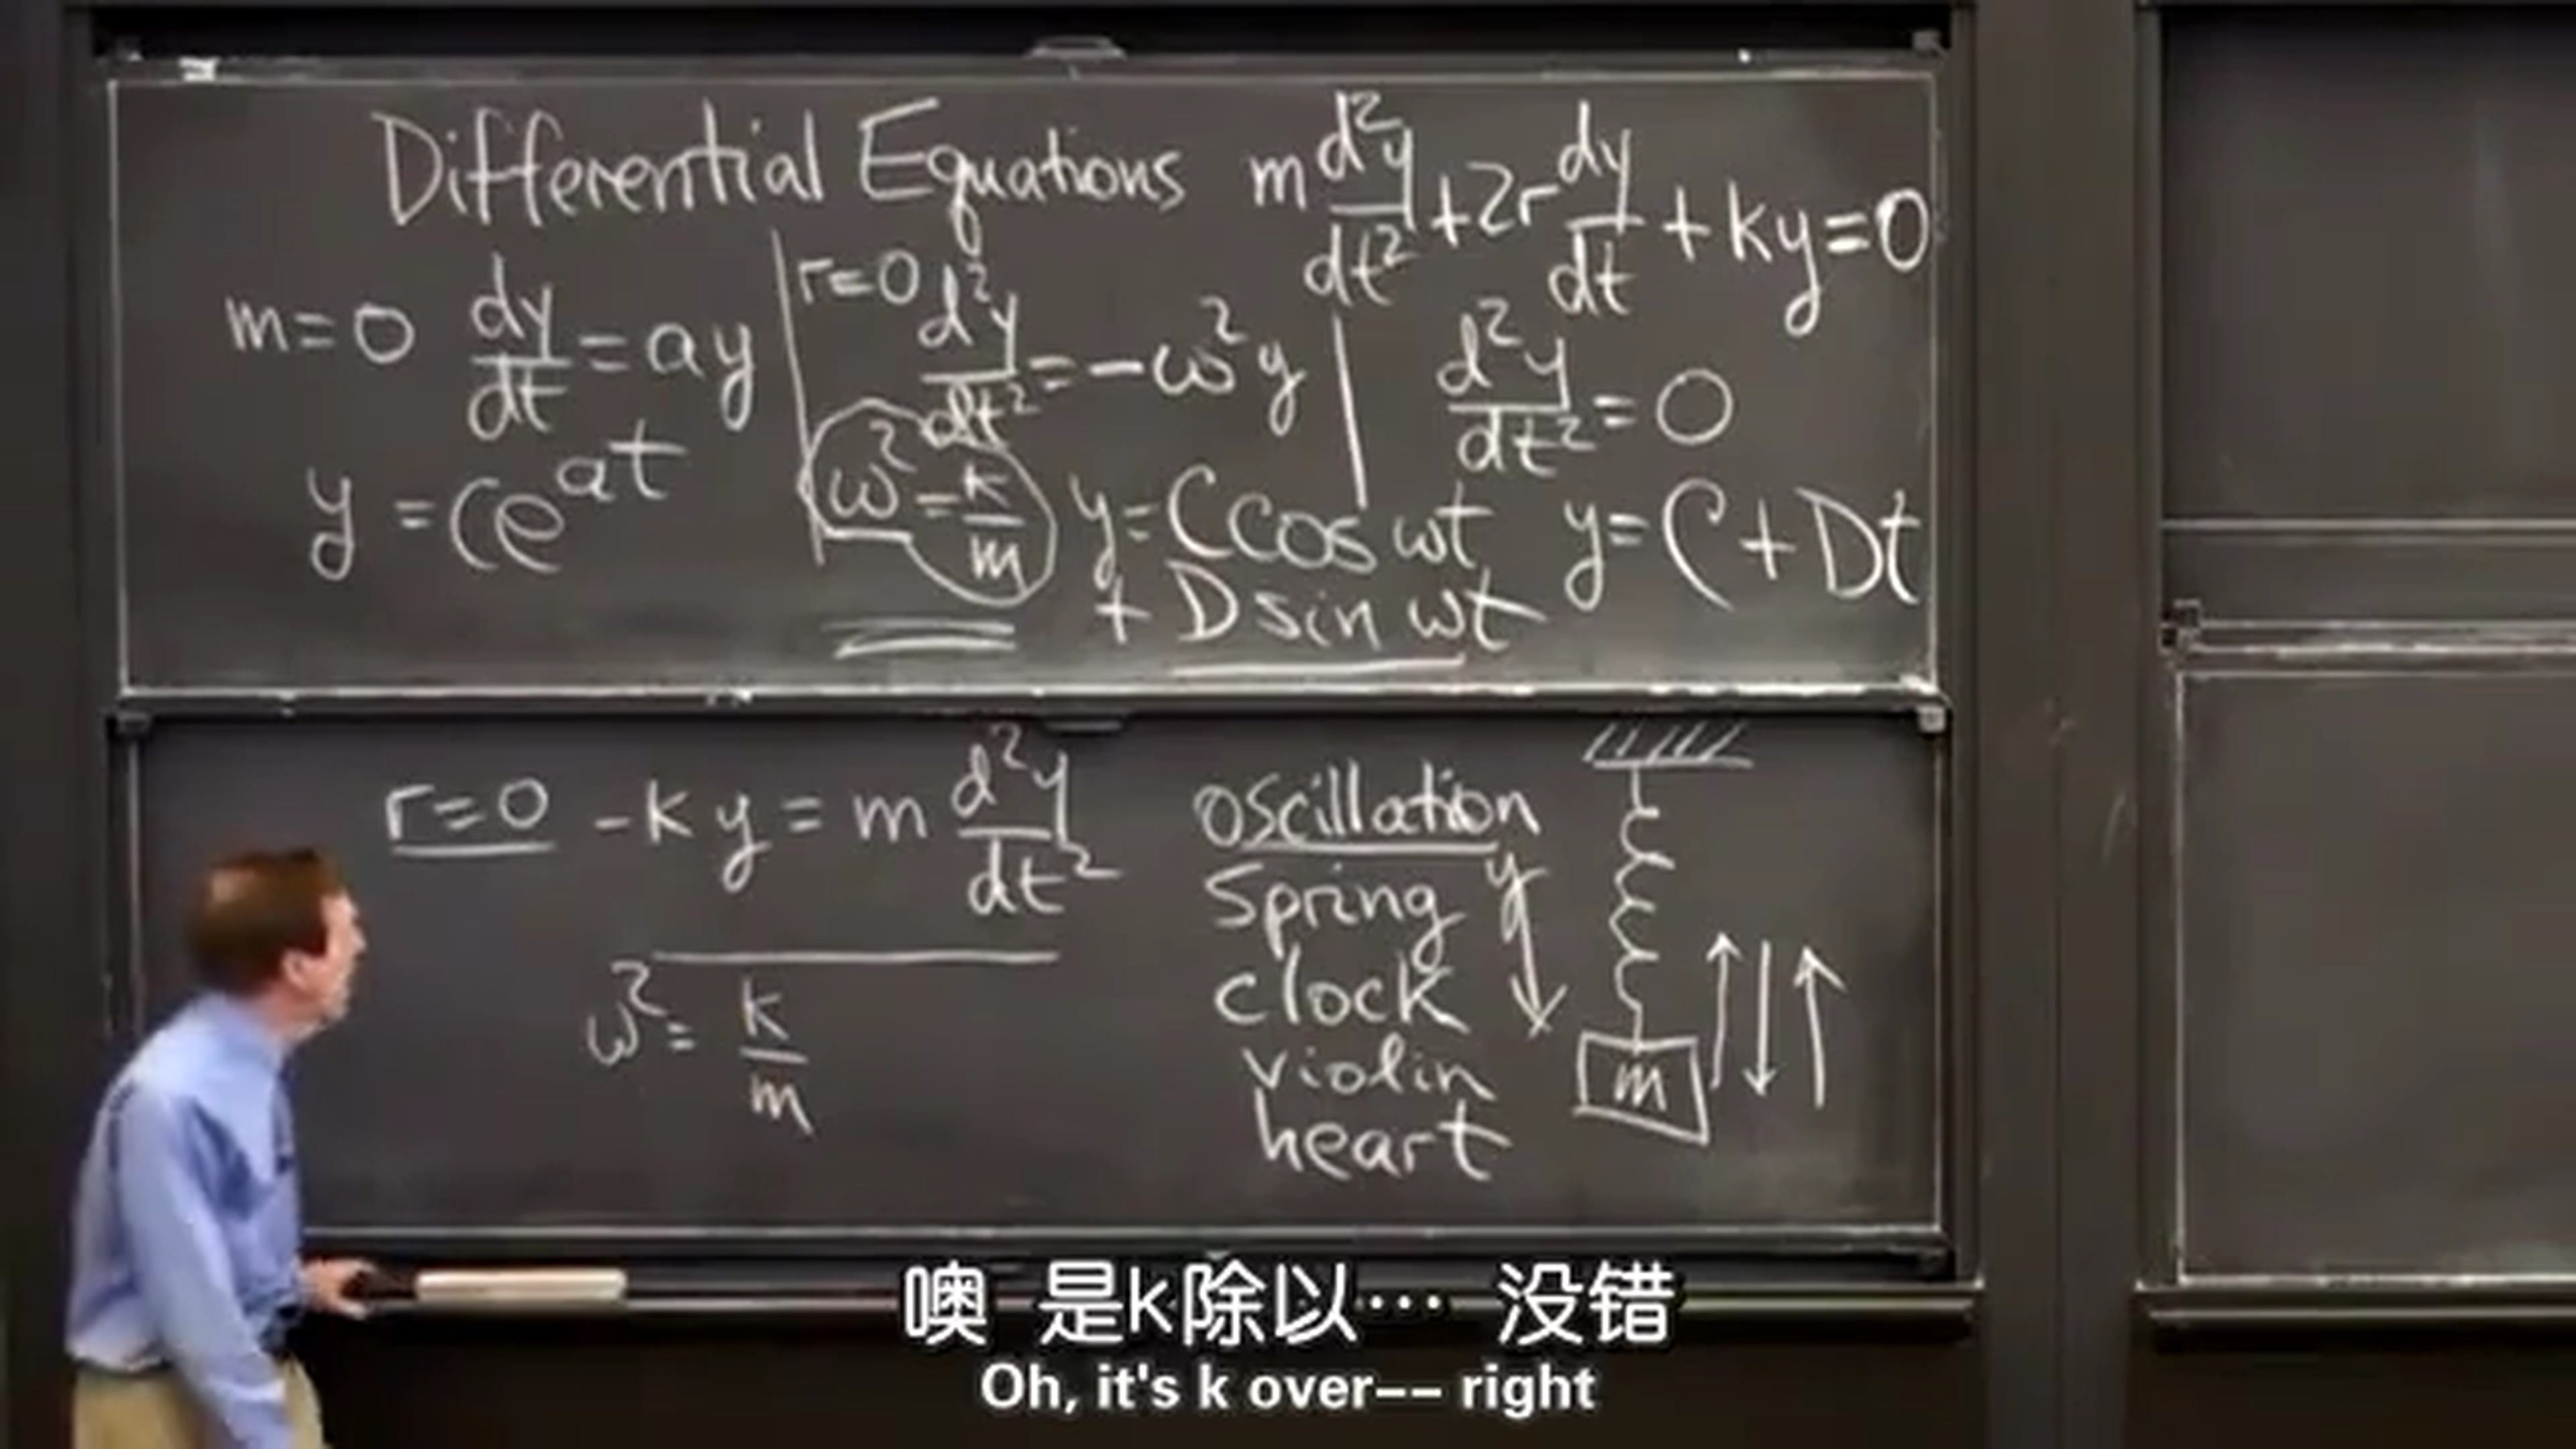 Differential Equations m d²y/dt² + 2r dy/dt + ky = 0
m = 0 dy/dt = ay
y = Ce^at
r = 0 d²y/dt² = -ω²y
ω² = k/m
y = C cos ωt
+ D sin ωt
d²y/dt² = 0
y = C + Dt
r = 0 -ky = m d²y/dt²
ω² = k/m
oscillation
Spring
clock
violin
heart
y
m
噢 是k除以… 没错
Oh, it's k over-- right